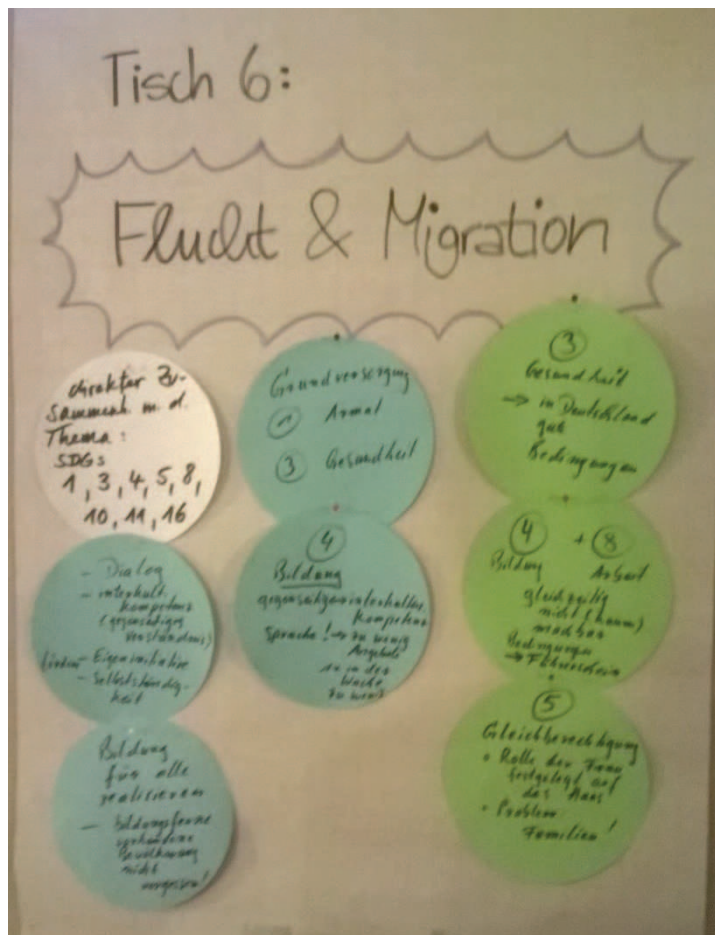 Tisch 6:
Flucht & Migration
direkter Zu-
sammenh. m. d.
Thema:
SDGs
1, 3, 4, 5, 8,
10, 11, 16
- Dialog
- interkult.
kompetenz
(gegenseitiges
verständnis)
fördern - Eigeninitiative
- Selbstständig-
keit
Bildung
für alle
realisieren
- bildungsferne
Bevölkerung
nicht
vergessen!
Grundversorgung
1 Armut
3 Gesundheit
4
Bildung
Kompetenz
Sprache! → zu wenig
Angebote
1x in der
Woche
zu wenig
3
Gesundheit
→ in Deutschland
gute
Bedingungen
4 + 8
Bildung Arbeit
gleichzeitig
nicht (kaum)
machbar
Bedingungen
→ Führerschein
5
Gleichberechtigung
• Rolle der Frau
festgelegt auf
das Haus
• Problem
Familien!